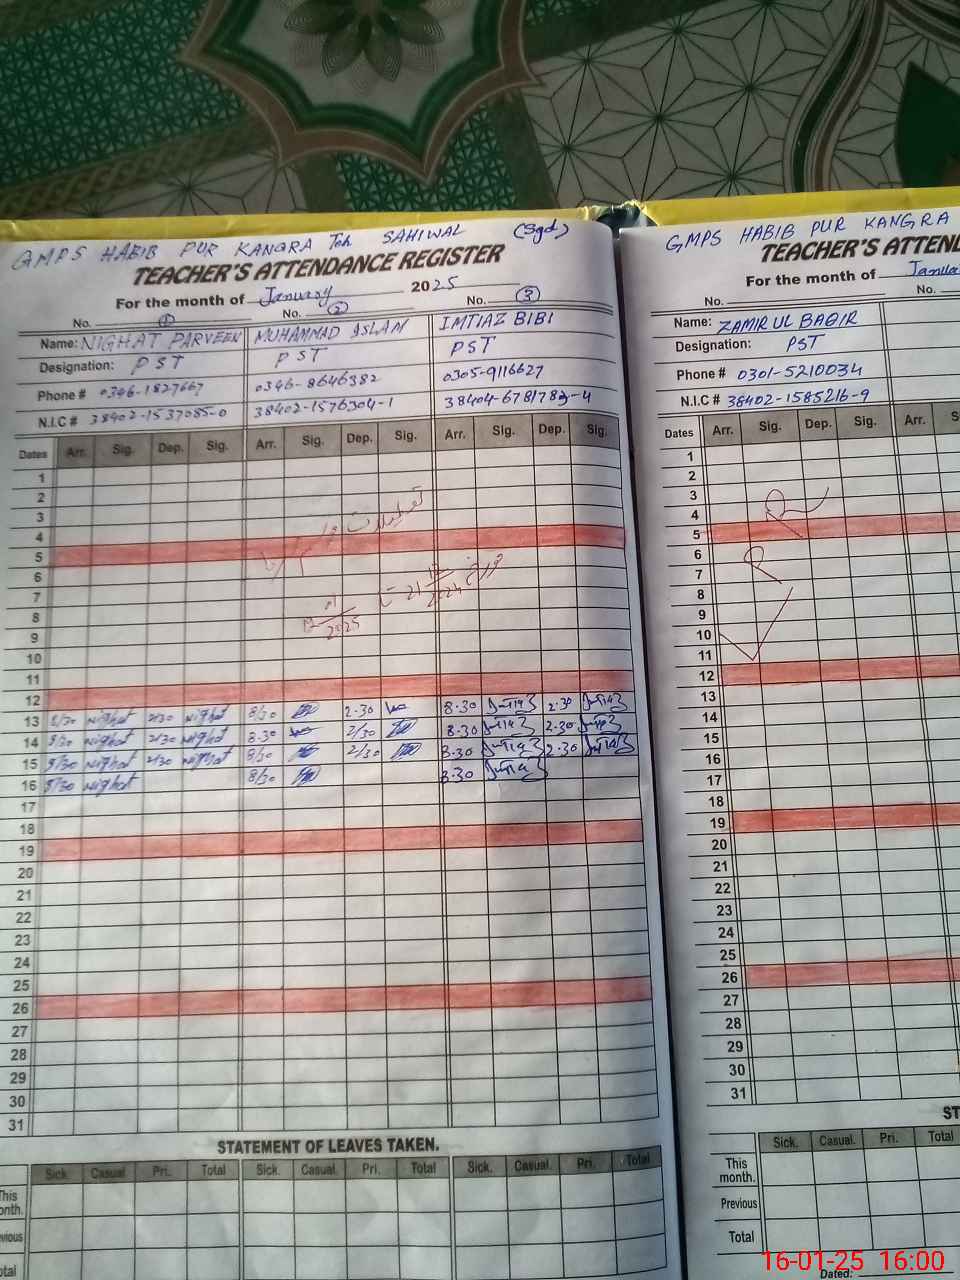 GMPS HABIB PUR KANGRA Teh SAHIWAL (Sgd)
TEACHER'S ATTENDANCE REGISTER
For the month of January 2025
No. ① No. ② No. ③
Name: NIGHAT PARVEEN MUHAMMAD ASLAM IMTIAZ BIBI
Designation: PST PST PST
Phone # 0346-1827667 0346-8646382 0305-9116627
N.I.C # 38402-1537085-0 38402-1576304-1 38404-678178-4
Dates Arr. Sig. Dep. Sig. Arr. Sig. Dep. Sig. Arr. Sig. Dep. Sig.
1
2
3
4
تعطیلات
5
6
7
مورخہ 21 12/2024
8
2025
9
10
11
12
13 8/30 Nighat 2/30 Nighat 8/30 2.30 8.30 2.30
14 8/30 Nighat 2/30 Nighat 8.30 2/30 8.30 2.30
15 8/30 Nighat 2/30 Nighat 8/30 2/30 8.30 2.30
16 8/30 Nighat 8/30 8.30
17
18
19
20
21
22
23
24
25
26
27
28
29
30
31
STATEMENT OF LEAVES TAKEN.
Sick. Casual. Pri. Total Sick. Casual. Pri. Total Sick. Casual. Pri. Total
This
onth.
vious
otal
GMPS HABIB PUR KANGRA
TEACHER'S ATTEN
For the month of Janua
No. No.
Name: ZAMIR UL BAQIR
Designation: PST
Phone # 0301-5210034
N.I.C # 38402-1585216-9
Dates Arr. Sig. Dep. Sig. Arr. S
1
2
3
4
5
6
7
8
9
10
11
12
13
14
15
16
17
18
19
20
21
22
23
24
25
26
27
28
29
30
31
ST
Sick. Casual. Pri. Total
This
month.
Previous
Total
Dated:
16-01-25 16:00